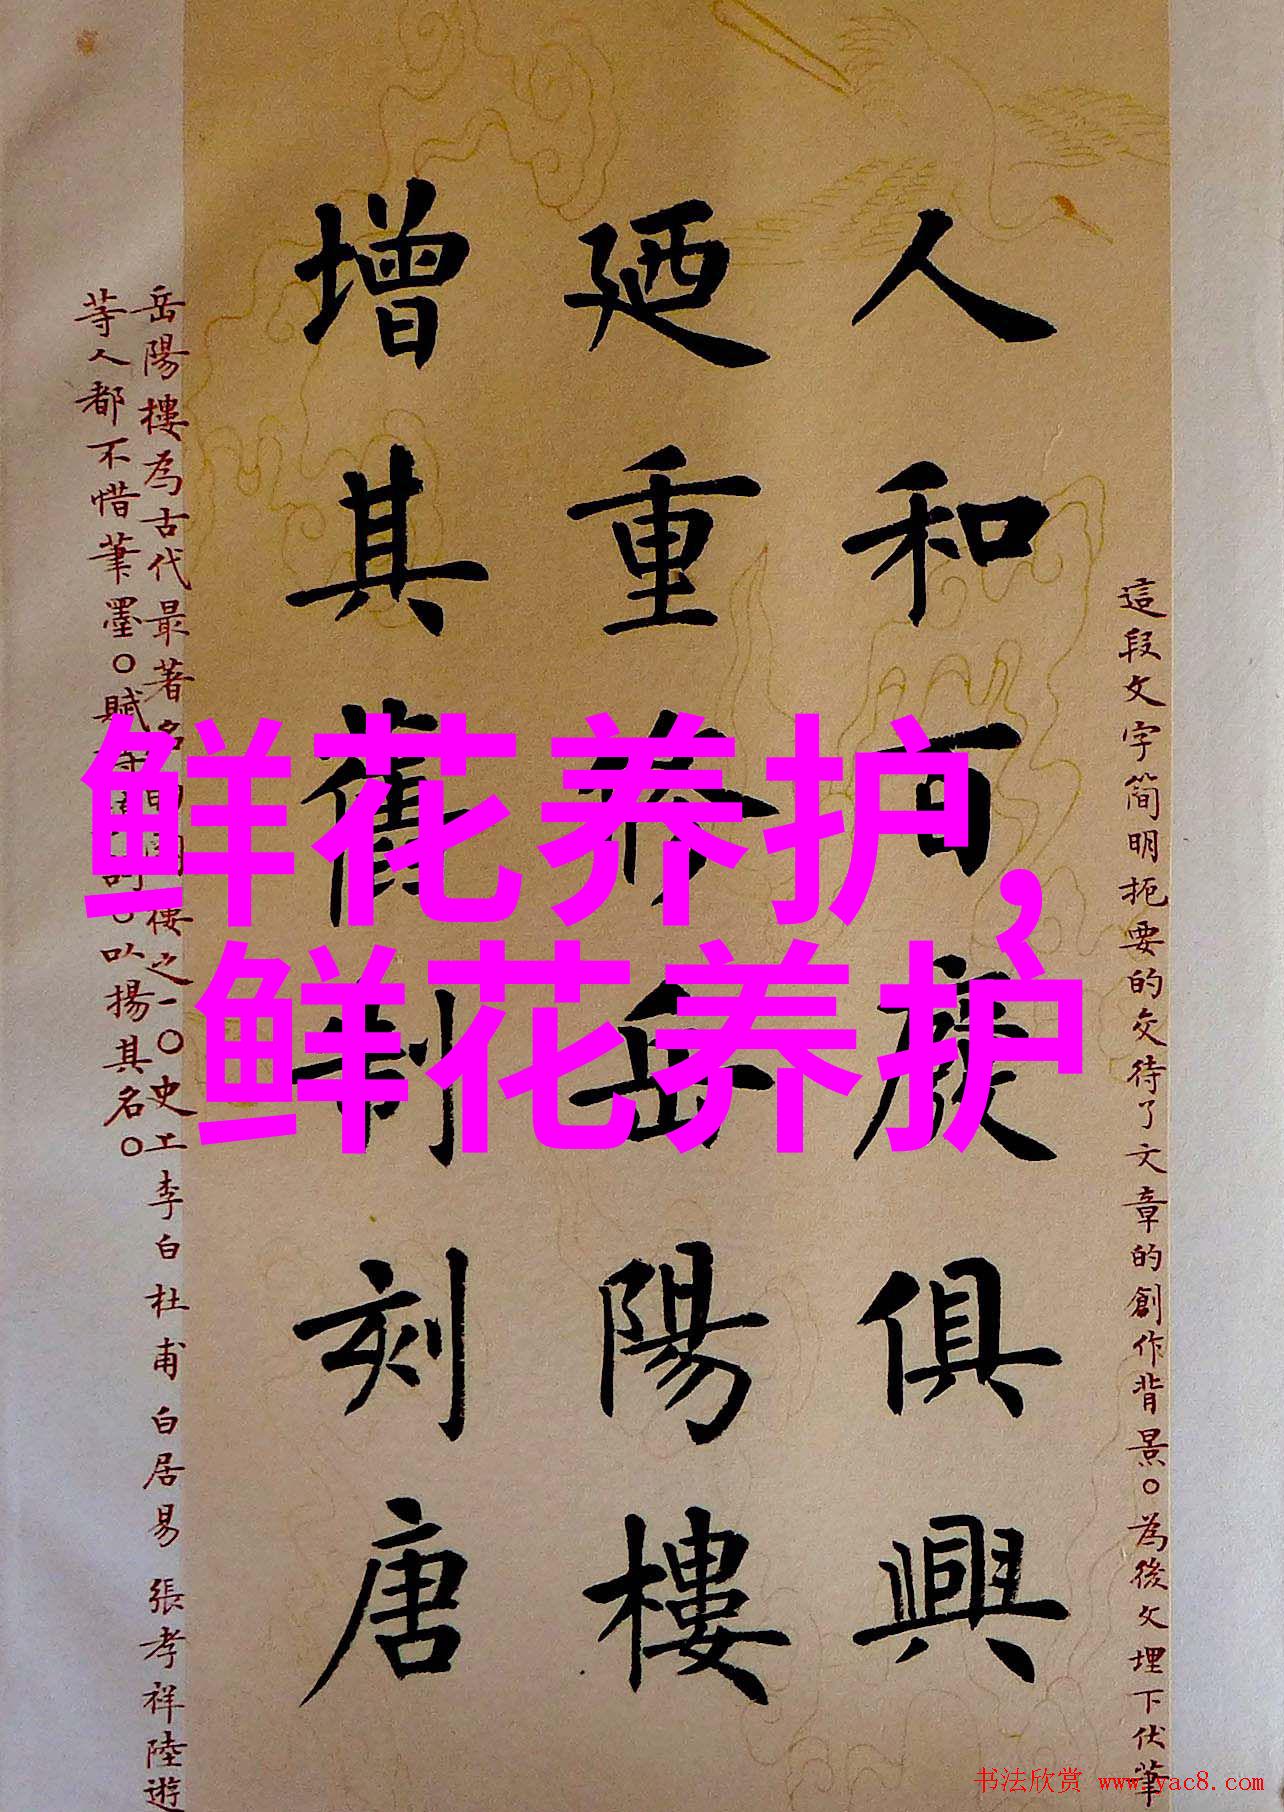 這段文字简明扼要的交待了文章的創作背景。為後文埋下伏筆
人和百廢俱興
廼重修岳陽樓
增其舊制刻唐
岳陽樓為古代最著名樓之一。史上李白杜甫白居易張孝祥陸遊
等人都不惜筆墨。賦。以揚其名。
鲜花养护,
鲜花养护
书法欣赏 www.yac8.com